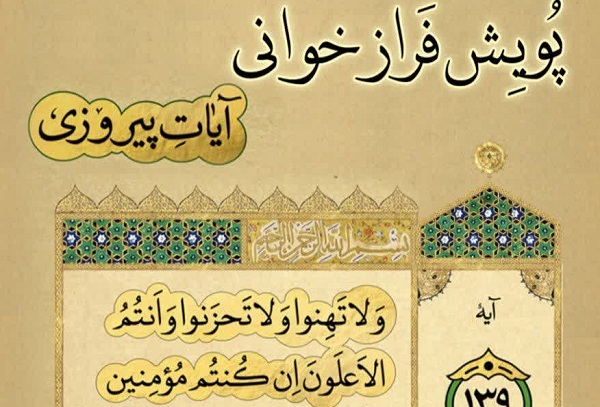 پُویِش فَراز خوانی
آیاتِ پیروزی
بسم الله الرحمن الرحیم
وَلا تَهِنوا وَلا تَحزَنوا وَاَنتُمُ
الاَعلَونَ اِن کُنتُم مُؤمِنین
آیهٔ
۱۳۹